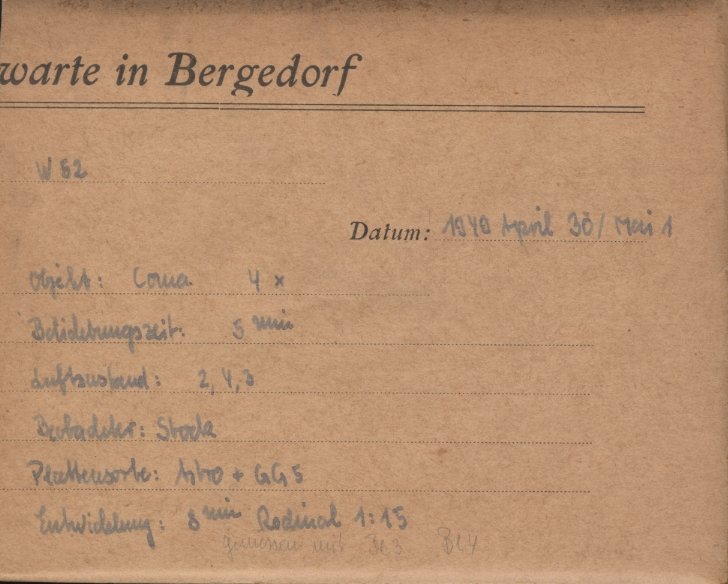 warte in Bergedorf
W 52
Datum: 1949 April 30/Mai 1
Objekt: Coma 4 x
Belichtungszeit: 5 min
Luftzustand: 2,4,3
Beobachter: Stock
Plattensorte: Astro + GG5
Entwicklung: 8 min Rodinal 1:15
gemessen mit